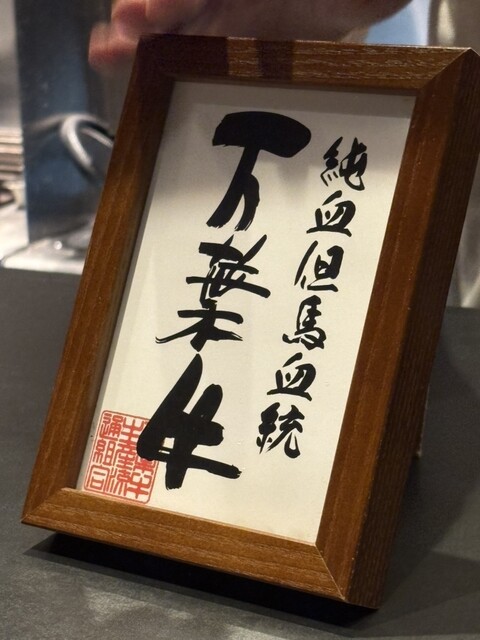 純血但馬血統
万葉牛